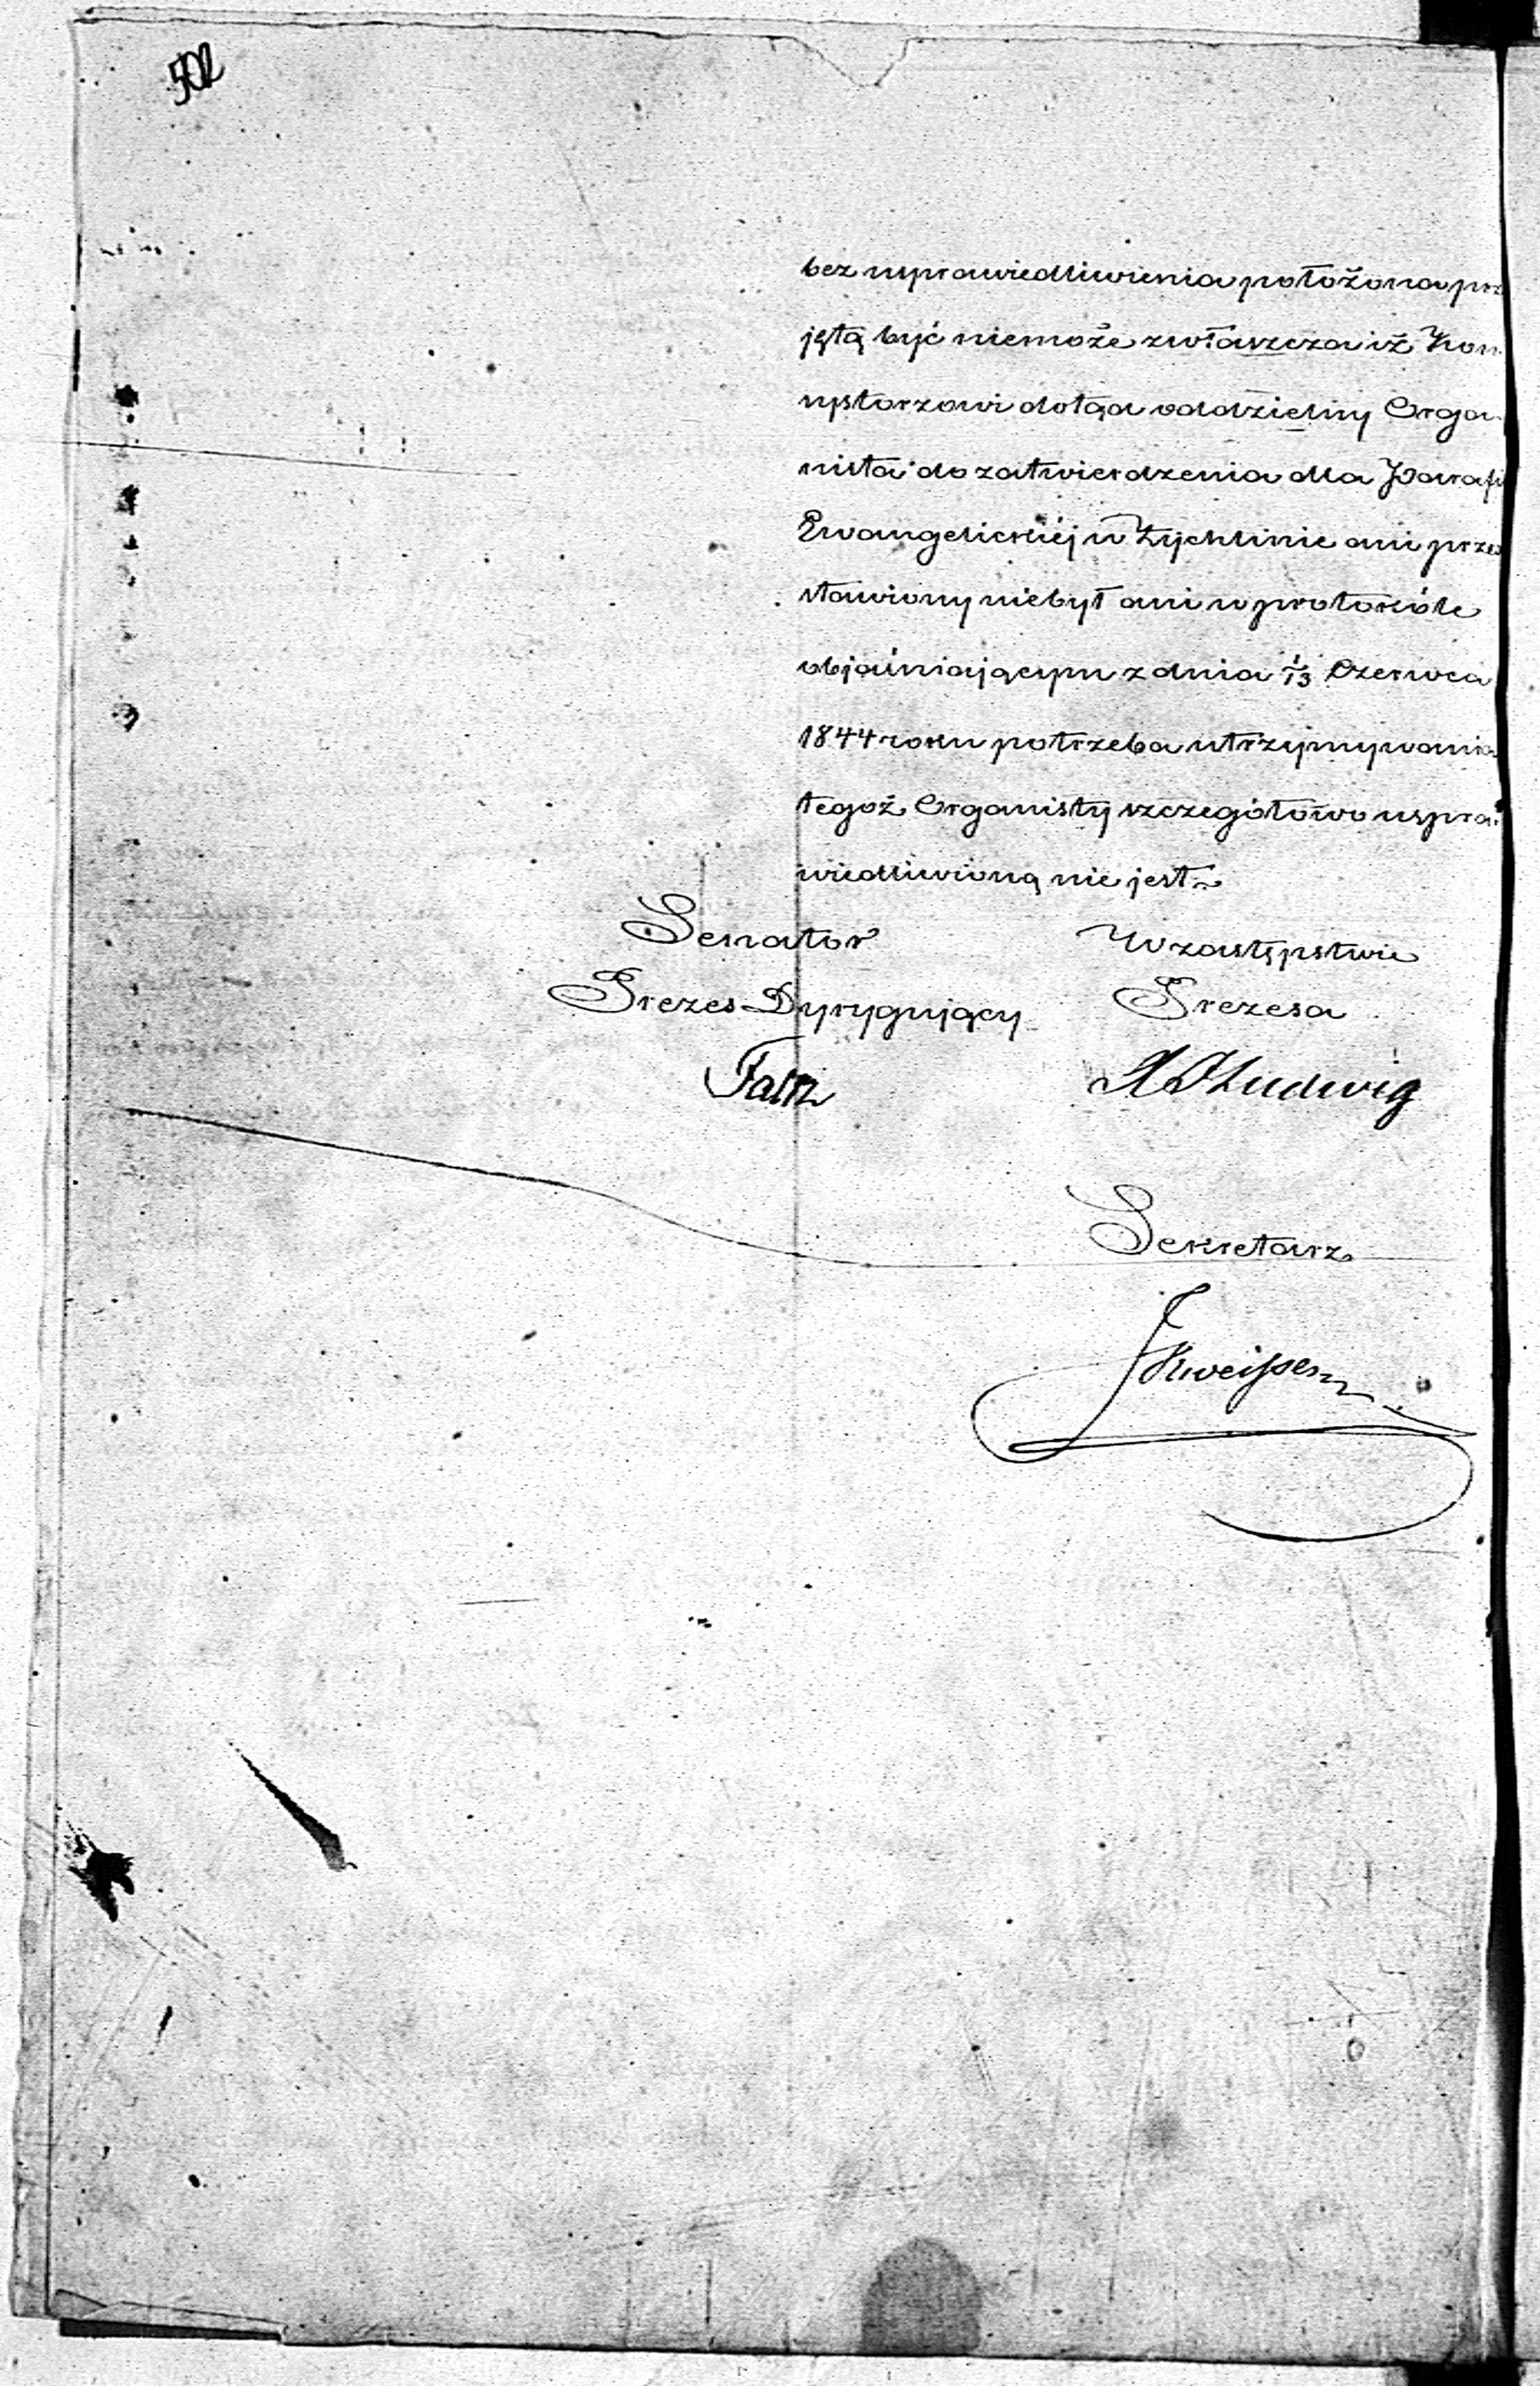 502
bez usprawiedliwienia położona prz
jętą być niemoże zwłaszcza iż Kon
systorzowi dotąd oddzielny Orga
nista do zatwierdzenia dla Parafi
Ewangelickiéj w Żychlinie ani prze
stawiony niebył ani w protokóle
objaśniającym z dnia 1/13 Czerwca
1844 roku potrzeba utrzymywania
tegoż Organisty szczegółowo uspra
wiedliwioną nie jest
Senator W zastępstwie
Prezes Dyrygujący Prezesa
Ludwig
Sekretarz